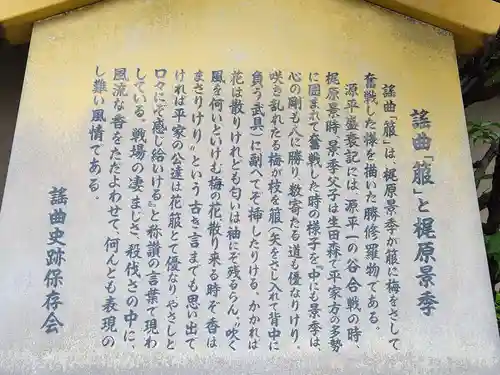 謡曲「箙」と梶原景季
謡曲「箙」は、梶原景季が箙に梅をさして
奮戦した様を描いた勝修羅物である。
源平盛衰記には、源平一の谷合戦の時、
梶原景時、景季父子は生田森で平家方の多勢
に囲まれて奮戦した時の様子を「中にも景季は、
心の剛も人に勝り、数寄たる道も優なりけり。
咲き乱れたる梅が枝を箙（矢をさし入れて背中に
負う武具）に副へてぞ挿したりける。かかれば
花は散りけれども匂いは袖にぞ残るらん。“吹く
風を何いといけむ梅の花散り来る時ぞ香は
まさりけり”という古き言までも思い出で
ければ平家の公達は花箙とて優なりやさしと
口々にぞ感じ給いける』と称讃の言葉で現わ
している。戦場の凄まじさ、殺伐さの中に、
風流な香をただよわせて、何んとも表現の
し難い風情である。
謡曲史跡保存会